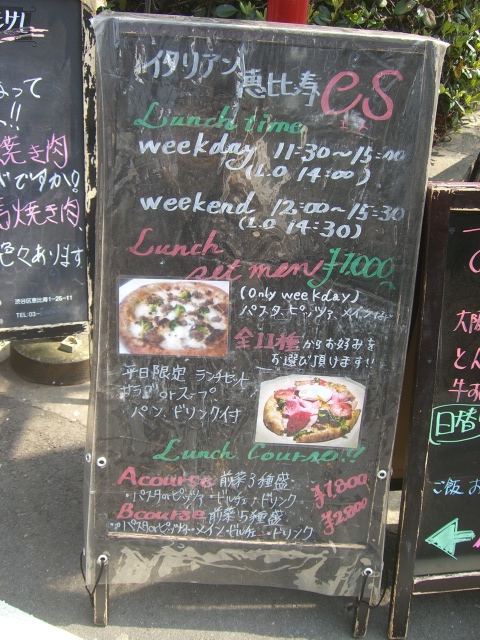 なって
!!
焼き肉
ですか?
焼き肉
色々あります
渋谷区恵比寿1-25-11
TEL:03-
イタリアン
恵比寿 es
Lunch time
weekday 11:30~15:00
(L.O 14:00)
weekend 12:00~15:30
(L.O 14:30)
Lunch
set menu ¥1,000
(Only weekday)
パスタ、ピッツァ、メイン
全11種からお好みを
お選び頂けます!!
平日限定 ランチセット
サラダorスープ
パン、ドリンク付
Lunch Course!!
A course 前菜3種盛
・パスタorピッツァ・ドルチェ・ドリンク
¥1,800
B course 前菜5種盛
・パスタorピッツァ・メイン・ドルチェ・ドリンク
¥2,800
大阪
とん
牛す
日替
ご飯 お